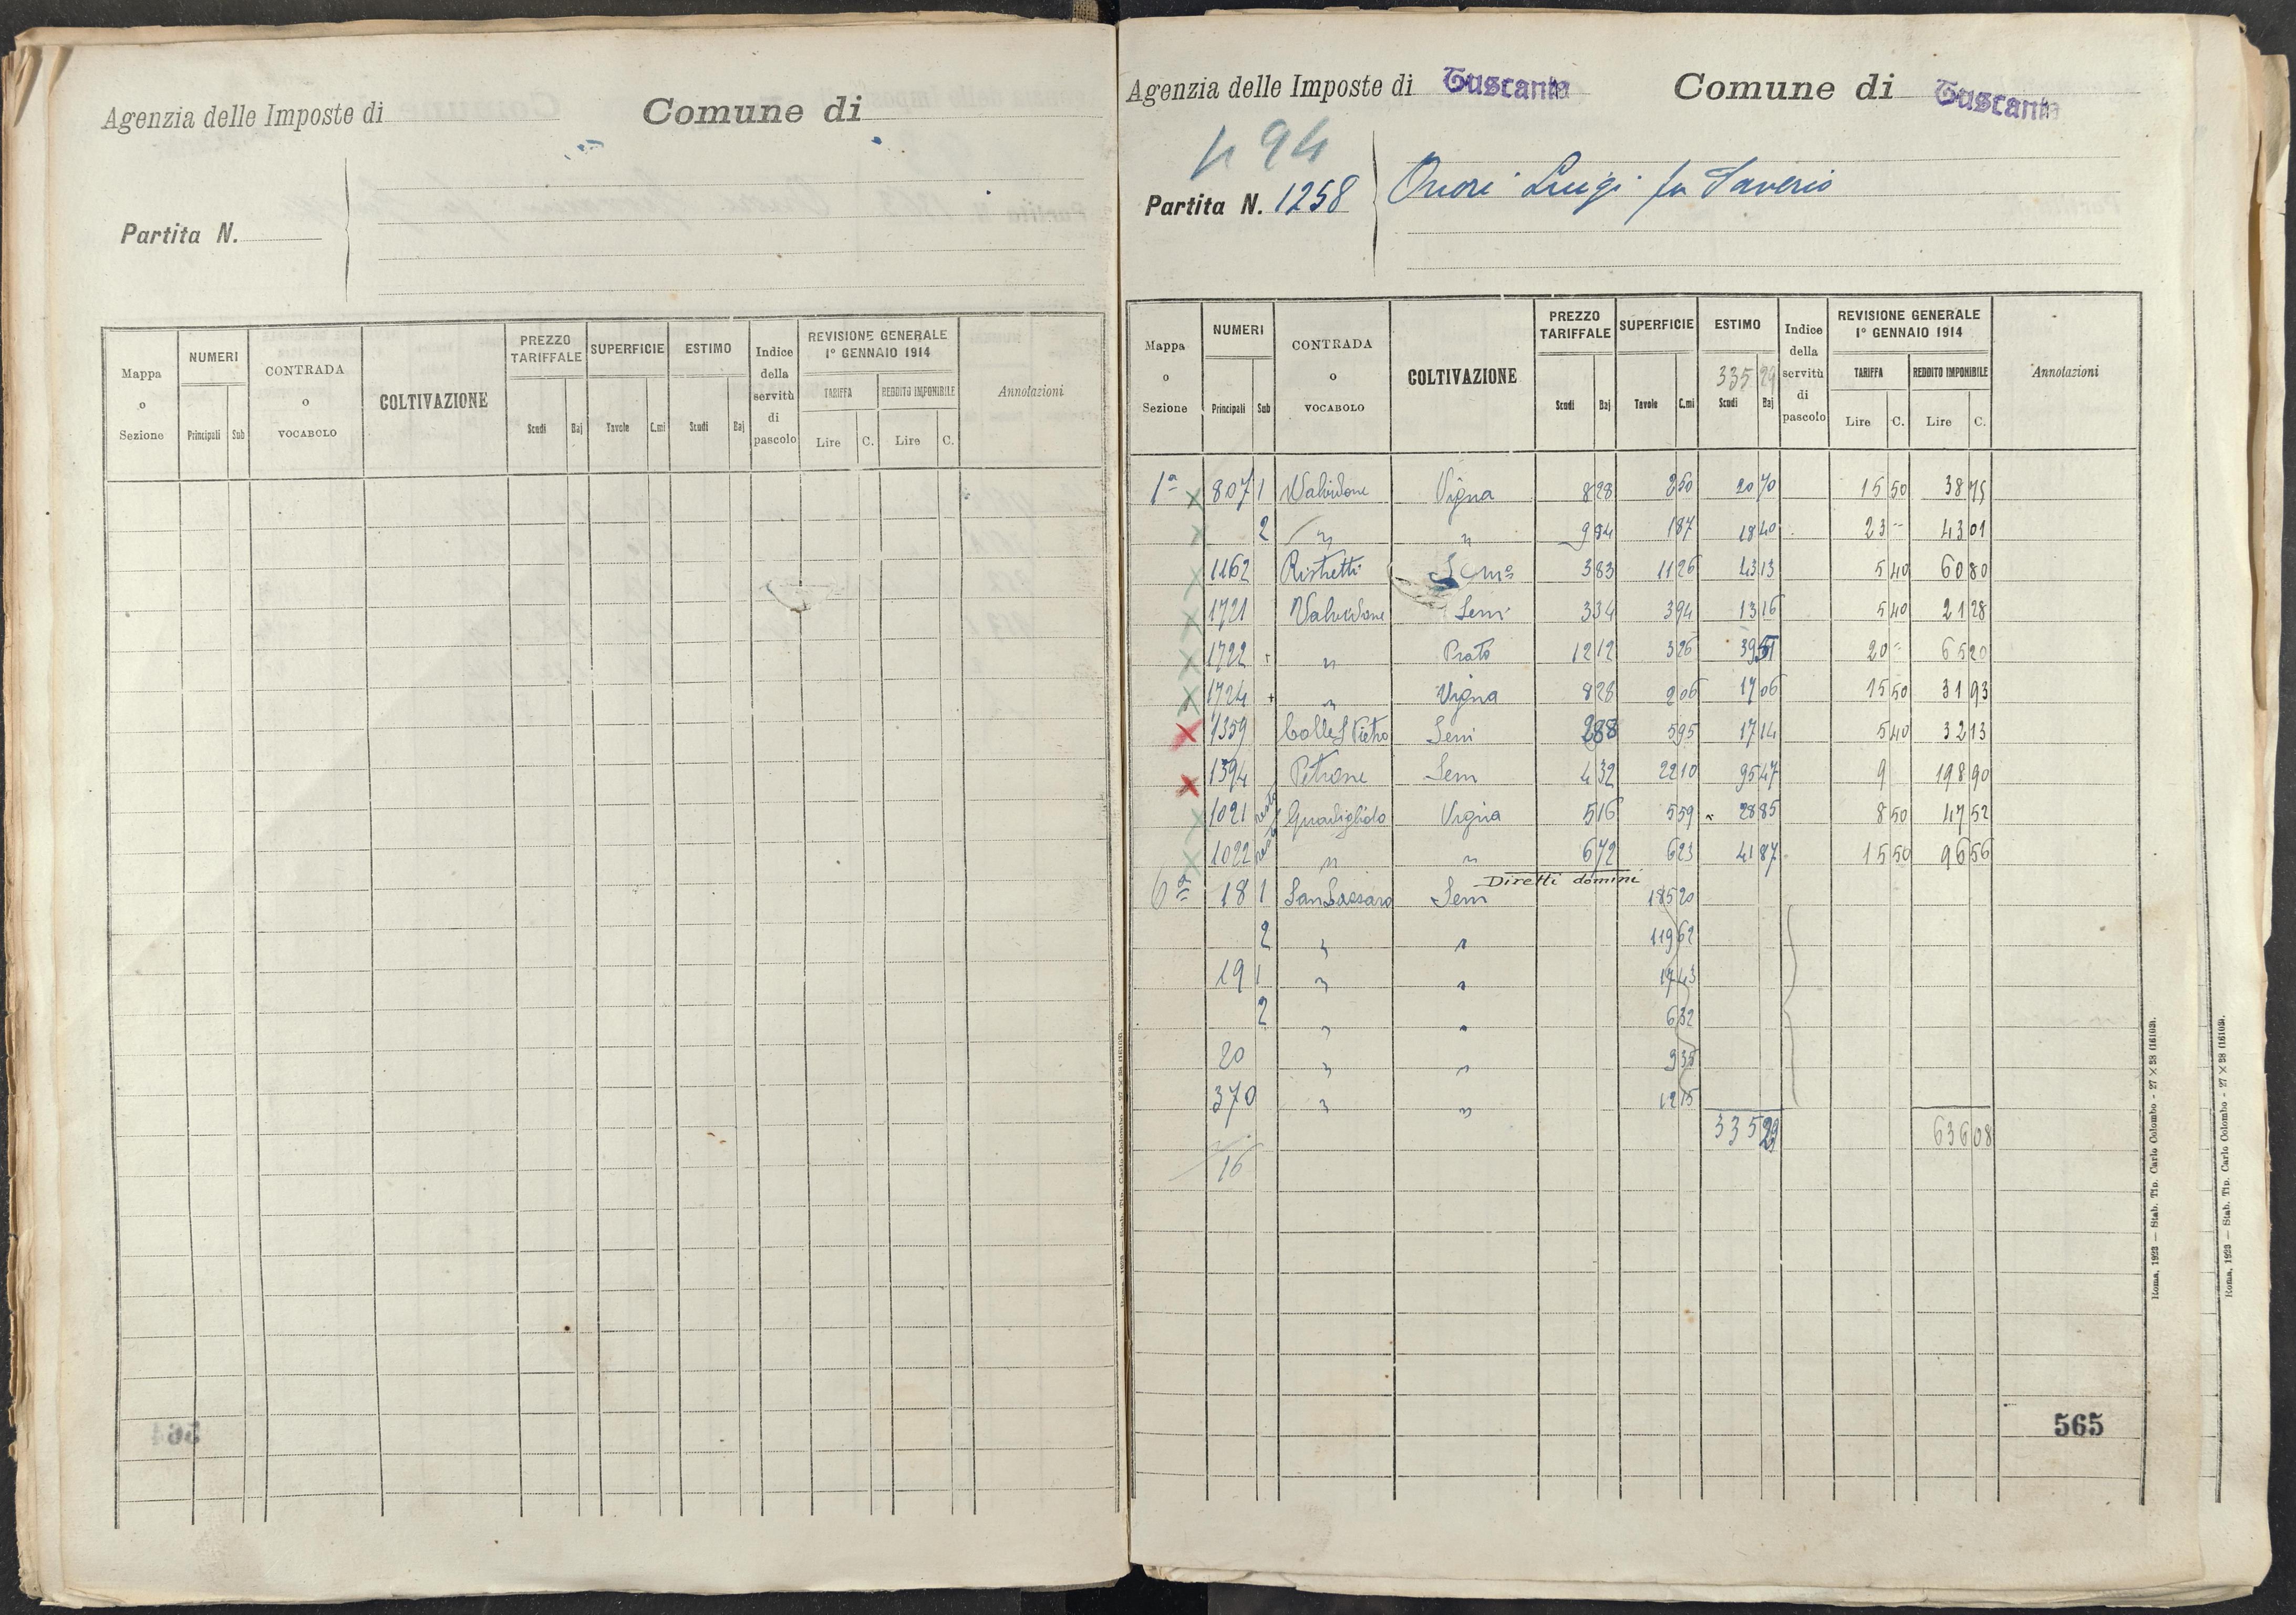 Agenzia delle Imposte di Comune di
Partita N.
Mappa o Sezione NUMERI Principali Sub CONTRADA o VOCABOLO COLTIVAZIONE PREZZO TARIFFALE Scudi Baj SUPERFICIE Tavole C.mi ESTIMO Scudi Baj Indice della servitù di pascolo REVISIONE GENERALE 1° GENNAIO 1914 TARIFFA Lire C. REDDITO IMPONIBILE Lire C. Annotazioni
Agenzia delle Imposte di Tuscania Comune di Tuscania
94
Partita N. 1258 Onori Luigi fu Saverio
Mappa o Sezione NUMERI Principali Sub CONTRADA o VOCABOLO COLTIVAZIONE PREZZO TARIFFALE Scudi Baj SUPERFICIE Tavole C.mi ESTIMO 335 29 Scudi Baj Indice della servitù di pascolo REVISIONE GENERALE 1° GENNAIO 1914 TARIFFA Lire C. REDDITO IMPONIBILE Lire C. Annotazioni
1ª 807 1 Valvidone Vigna 8 28 2 50 20 70 15 50 38 75
2 " " 9 84 1 87 18 40 23 - 43 01
1162 Ristretti Sem 3 83 11 26 43 13 5 40 60 80
1721 Valvidone Sem 3 34 3 94 13 16 5 40 21 28
1722 " Prato 12 12 3 26 39 51 20 - 65 20
1724 " Vigna 8 28 2 06 17 06 15 50 31 93
1359 Colle S Pietro Sem 2 88 5 95 17 14 5 40 32 13
1394 Petrone Sem 4 32 22 10 95 47 9 198 90
1021 resto Guadigliolo Vigna 5 16 5 59 28 85 8 50 47 52
1022 resto " " 6 72 6 23 41 87 15 50 96 56
Diretti domini
6ª 18 1 San Lazzaro Sem 185 20
2 " " 119 62
19 1 " " 17 43
2 " " 6 32
20 " " 9 35
370 " " 12 15
335 29 636 08
16
565
Roma, 1923 — Stab. Tip. Carlo Colombo - 27 × 38 (16103).
Roma, 1923 — Stab. Tip. Carlo Colombo - 27 × 38 (16103).